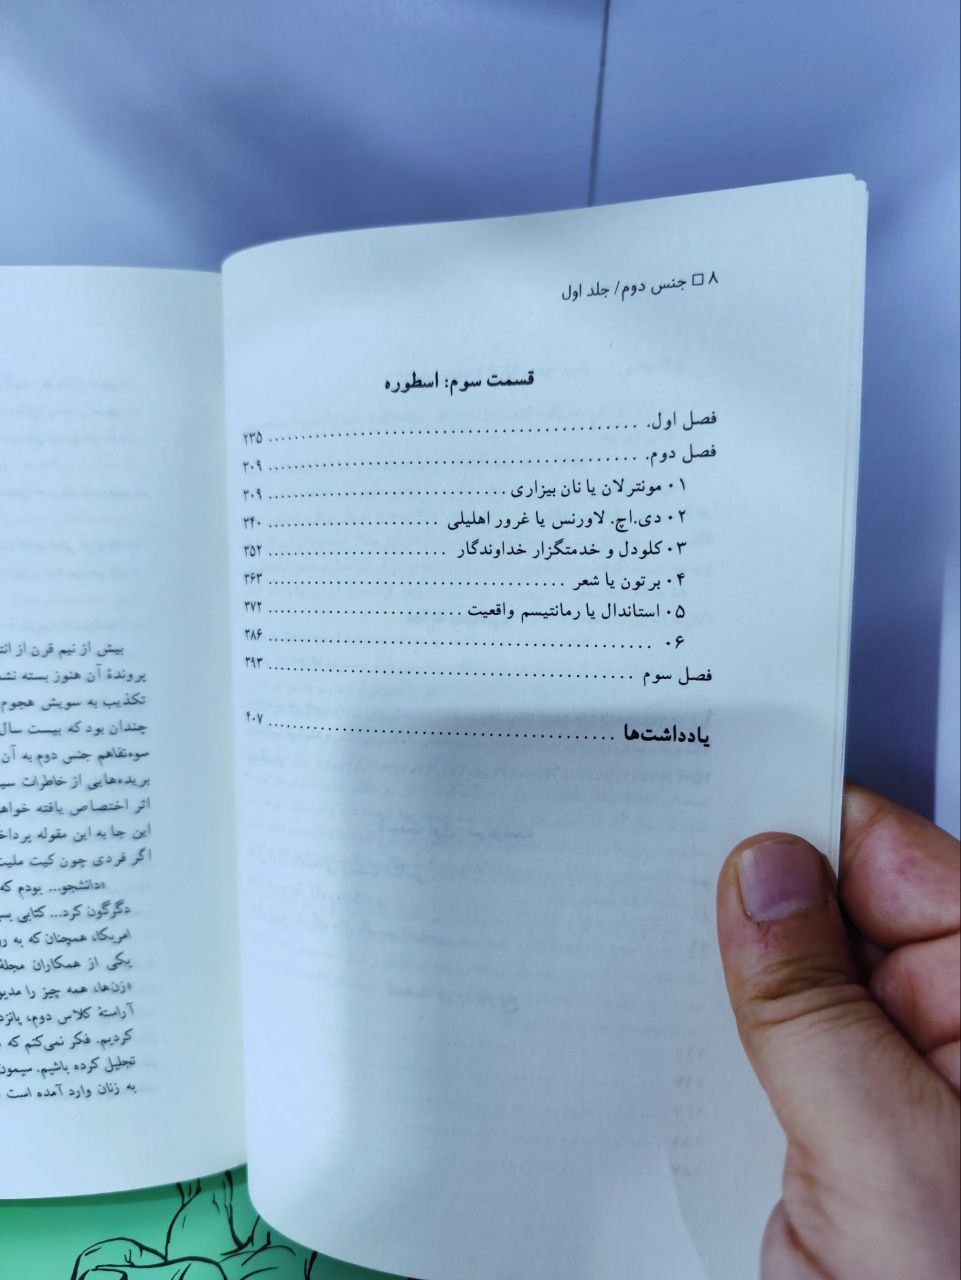 ۸ □ جنس دوم/ جلد اول
قسمت سوم: اسطوره
فصل اول. ........ ۲۳۵
فصل دوم. ........ ۳۰۹
۰۱ مونترلان یا نان بیزاری ........ ۳۰۹
۰۲ دی.اچ. لاورنس یا غرور اهلیلی ........ ۳۴۰
۰۳ کلودل و خدمتگزار خداوندگار ........ ۳۵۲
۰۴ برتون یا شعر ........ ۳۶۳
۰۵ استاندال یا رمانتیسم واقعیت ........ ۳۷۲
۰۶ ........ ۳۸۶
فصل سوم ........ ۳۹۳
یادداشت‌ها ........ ۴۰۷
بیش از نیم قرن از
پروندهٔ آن هنوز بسته
تکذیب به سویش هجوم
چندان بود که بیست سال
سوءتفاهم جنس دوم به آن
بریده‌هایی از خاطرات
اثر اختصاص یافته
این جا به این مقوله
اگر فردی چون کیت
«دانشجو... بودم که
دگرگون کرد... کتابی
امریکا، همچنان که به
یکی از همکاران
«زن‌ها، همه چیز را
آراستهٔ کلاس دوم،
کردیم. فکر نمی‌کنم که
تجلیل کرده باشیم.
به زنان وارد آمده است